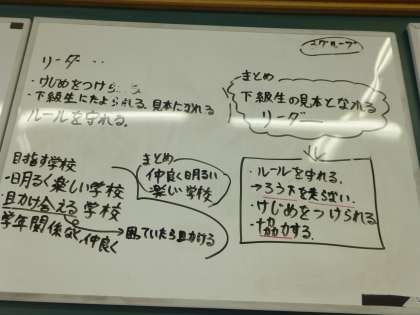 2グループ
リーダー‥
・けじめをつけら
・下級生にたよられる、見本になれる
ルールを守れる。
まとめ
下級生の見本となれる
リーダー
目指す学校
・明るく楽しい学校
・助け合える学校
学年関係なく、仲良く
→困っていたら助ける
まとめ
仲良く明るい
楽しい学校
・ルールを守れる。
→ろう下を走らない。
・けじめをつけられる
・協力する。